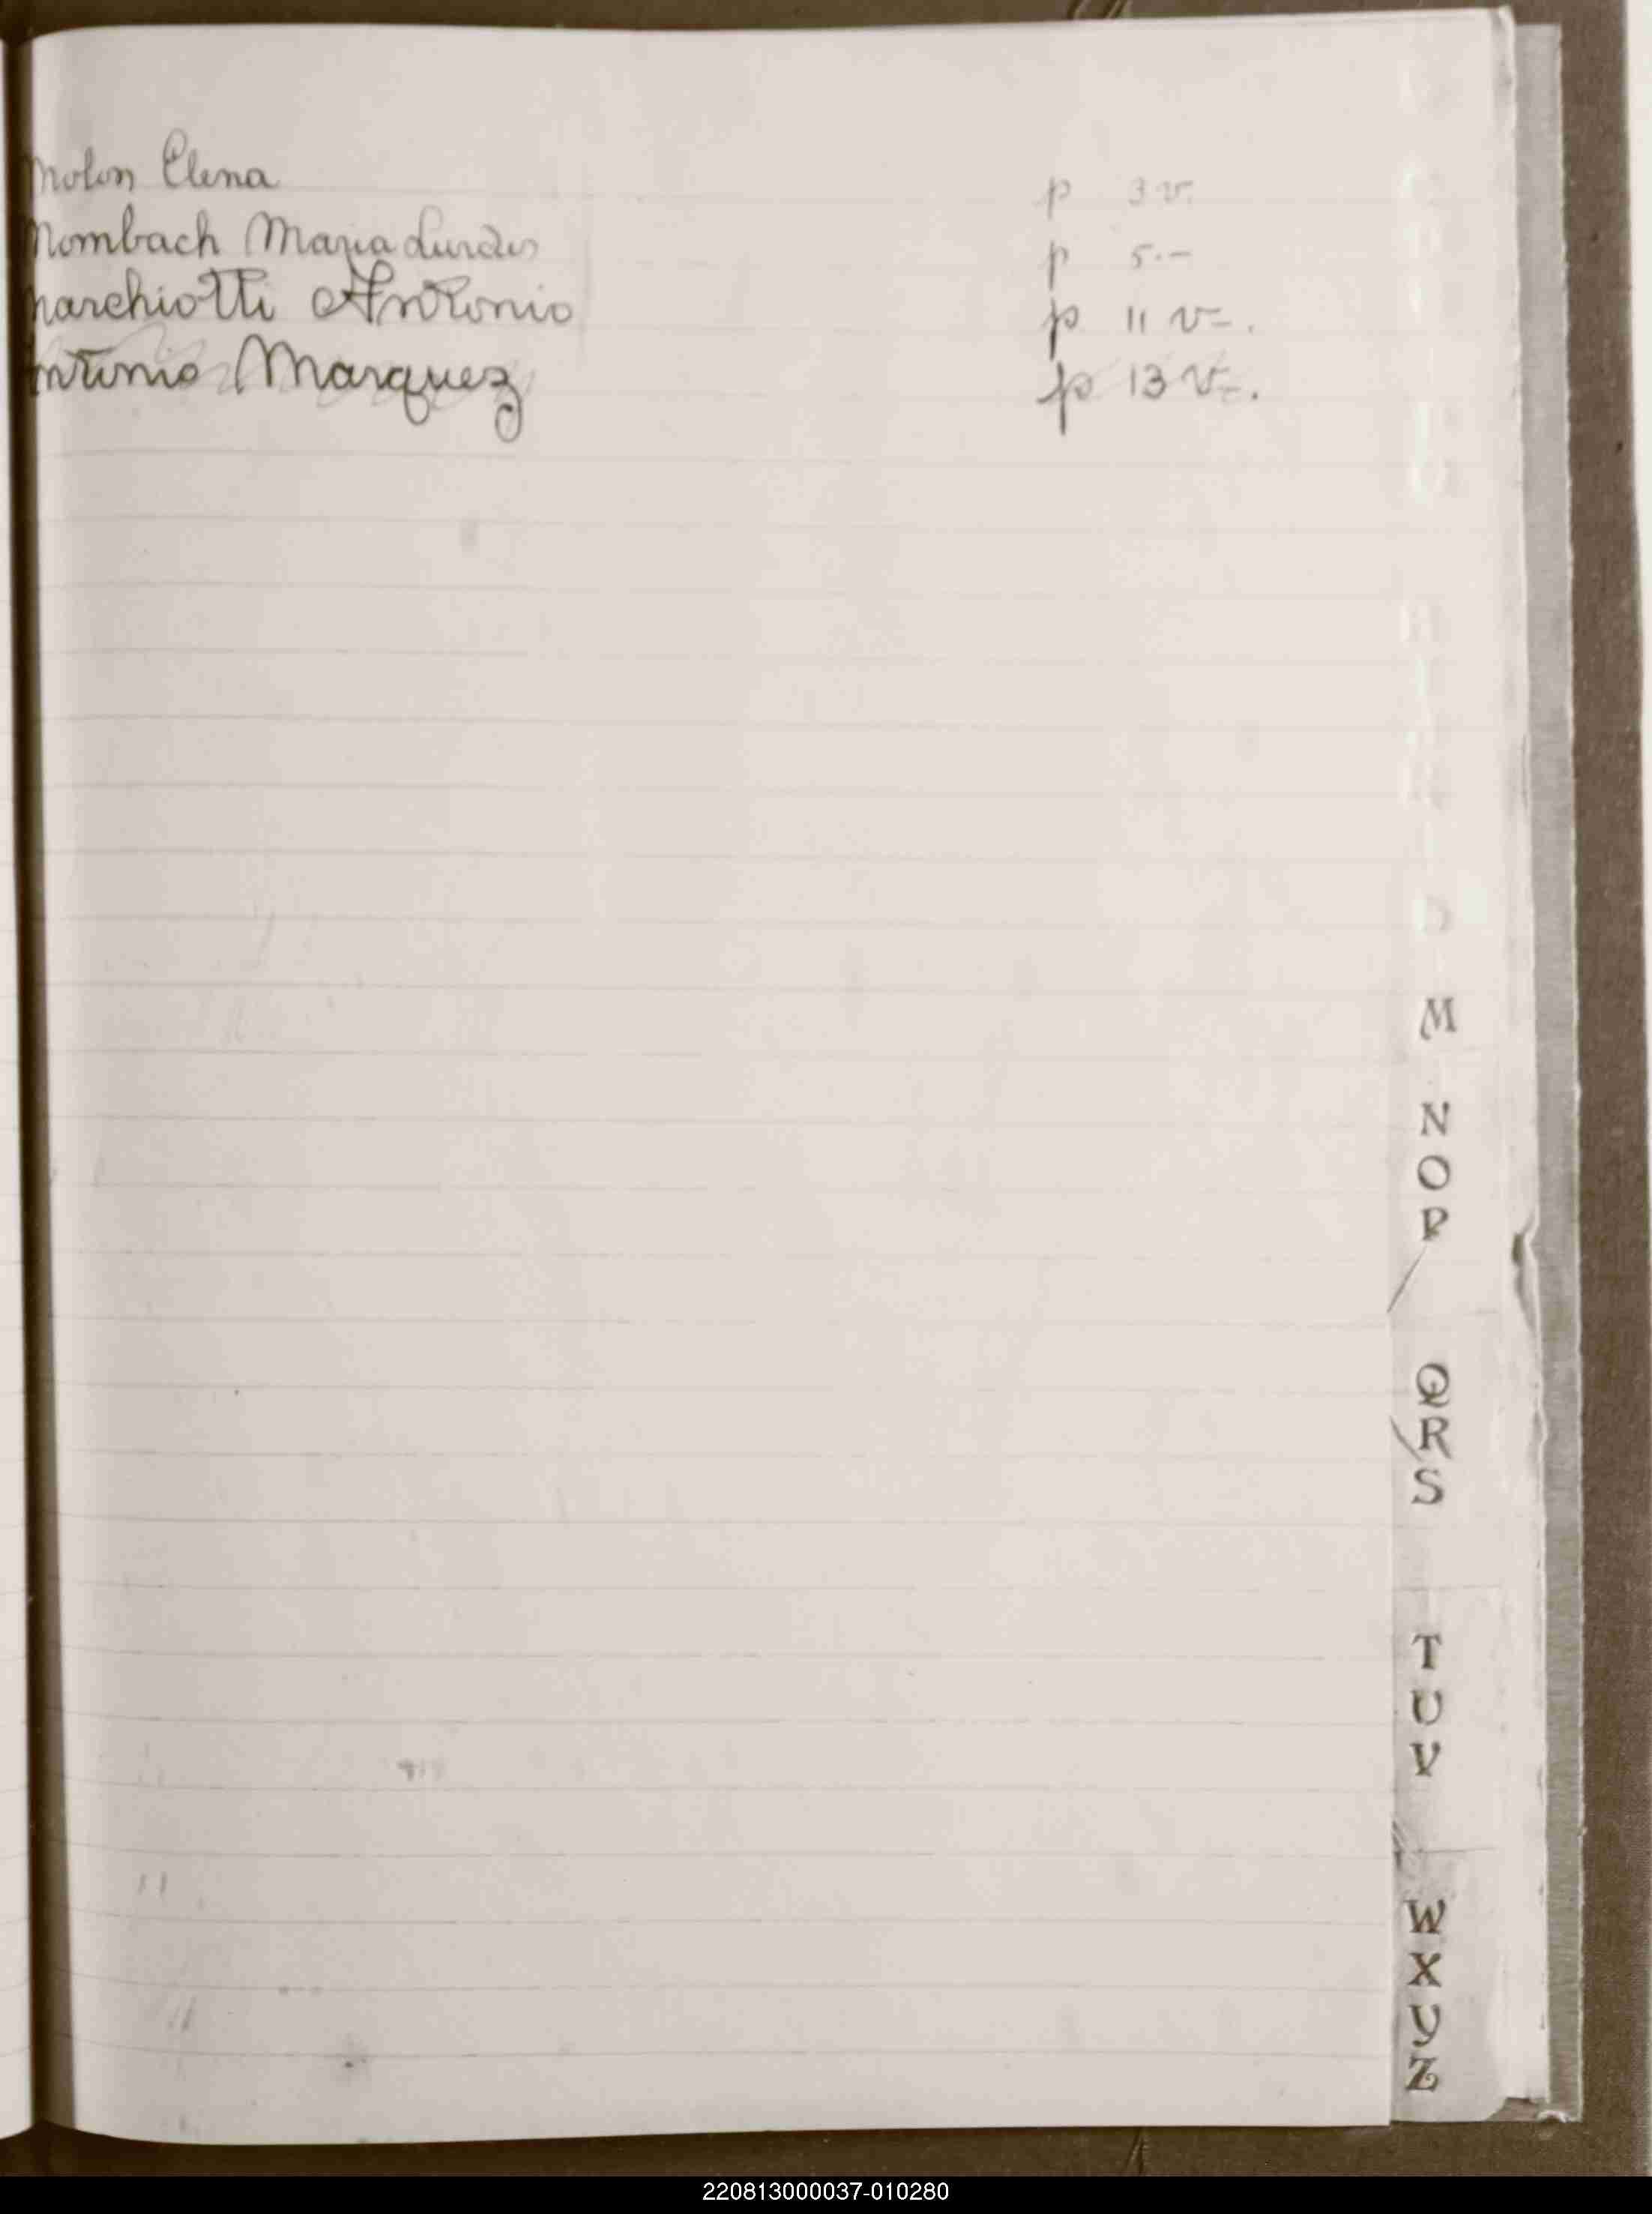 Molon Elena p 3 v.
Mombach Maria Lurdes p 5.-
Marchiotti Antonio p 11 v-.
Antonio Marquez p 13 v-.
M
N
O
P
Q
R
S
T
U
V
W
X
Y
Z
220813000037-010280